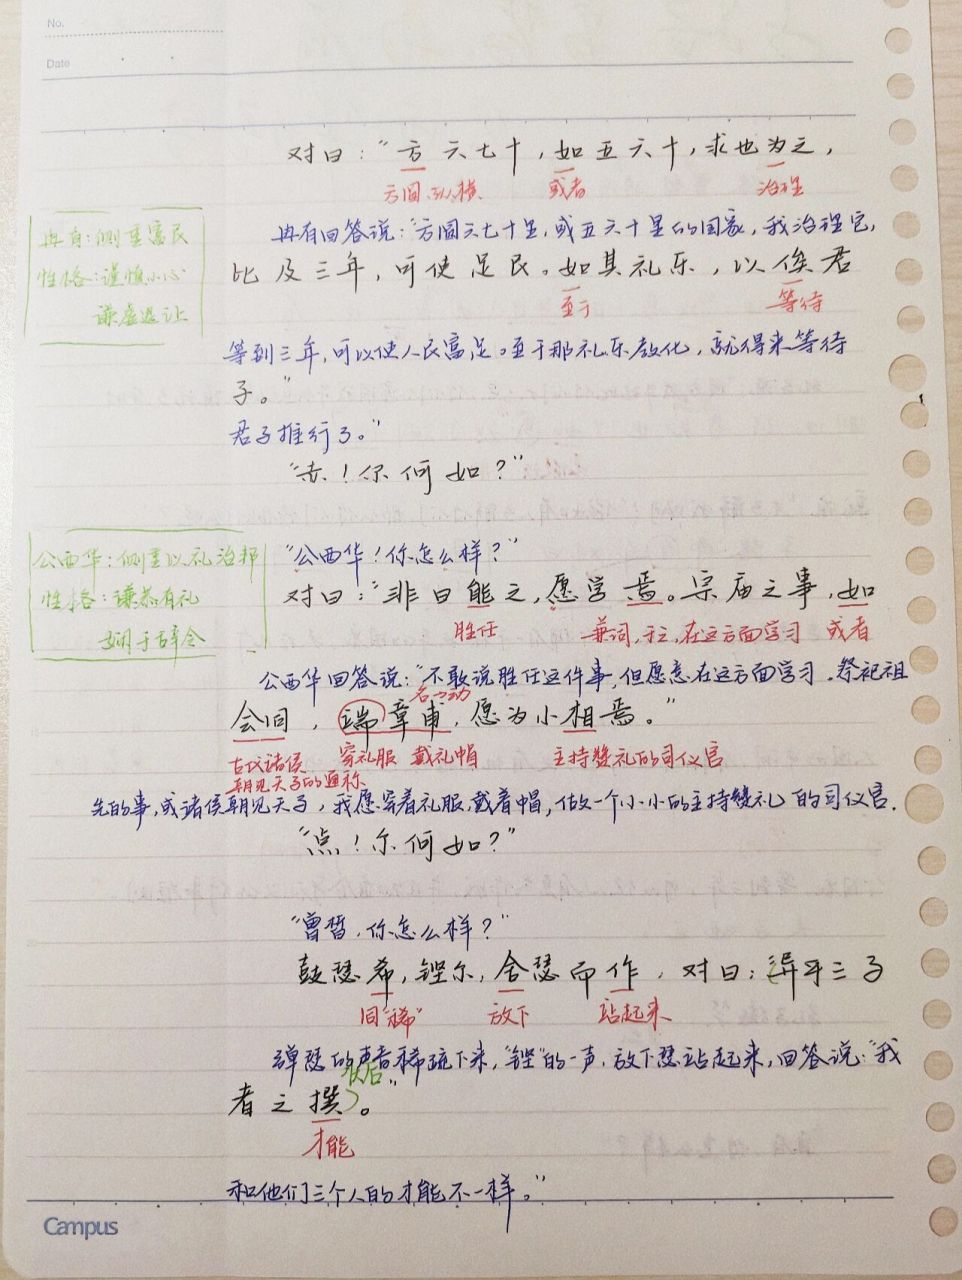 No.
Date
对曰：“方六七十，如五六十，求也为之，
方圆、纵横 或者 治理
冉有回答说：“方圆六七十里，或五六十里的国家，我治理它，
冉有：侧重富民
性格：谨慎小心
谦虚退让
比及三年，可使足民。如其礼乐，以俟君
至于 等待
等到三年，可以使人民富足。至于那礼乐教化，就得来等待
子。”
君子推行了。”
“赤！尔何如？”
“公西华！你怎么样？”
公西华：侧重以礼治邦
性格：谦恭有礼
娴于辞令
对曰：“非曰能之，愿学焉。宗庙之事，如
胜任 兼词，于之，在这方面学习 或者
公西华回答说：“不敢说胜任这件事，但愿意在这方面学习。祭祀祖
名→动
会同，端章甫，愿为小相焉。”
古代诸侯 穿礼服 戴礼帽 主持赞礼的司仪官
朝见天子的通称
先的事，或诸侯朝见天子，我愿穿着礼服，戴着帽，做一个小小的主持赞礼的司仪官.
“点！尔何如？”
“曾皙，你怎么样？”
鼓瑟希，铿尔，舍瑟而作，对曰：异乎三子
同“稀” 放下 站起来
弹瑟的声音稀疏下来，“铿”的一声，放下瑟站起来，回答说：“我
状后
者之撰。”
才能
和他们三个人的才能不一样。”
Campus